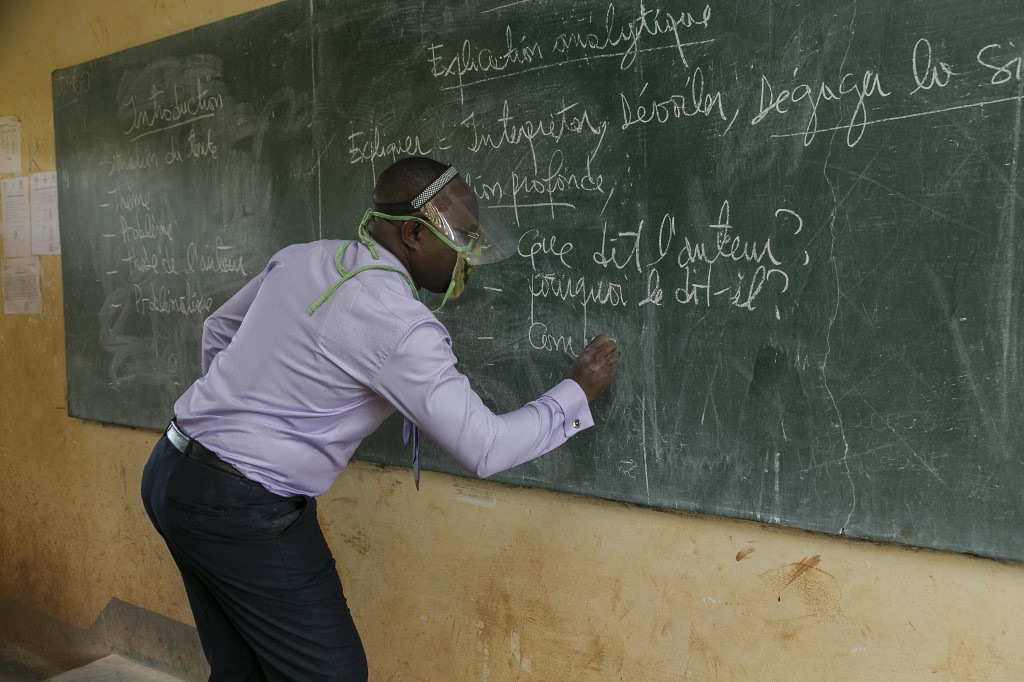 Introduction
Situation du texte
- Thème
- Problème
- Thèse de l'auteur
- Problématique
Explication analytique
Expliquer = Interpréter, Dévoiler, Dégager la Si
profonde,
Que dit l'auteur?
- pourquoi le dit-il?
- Com